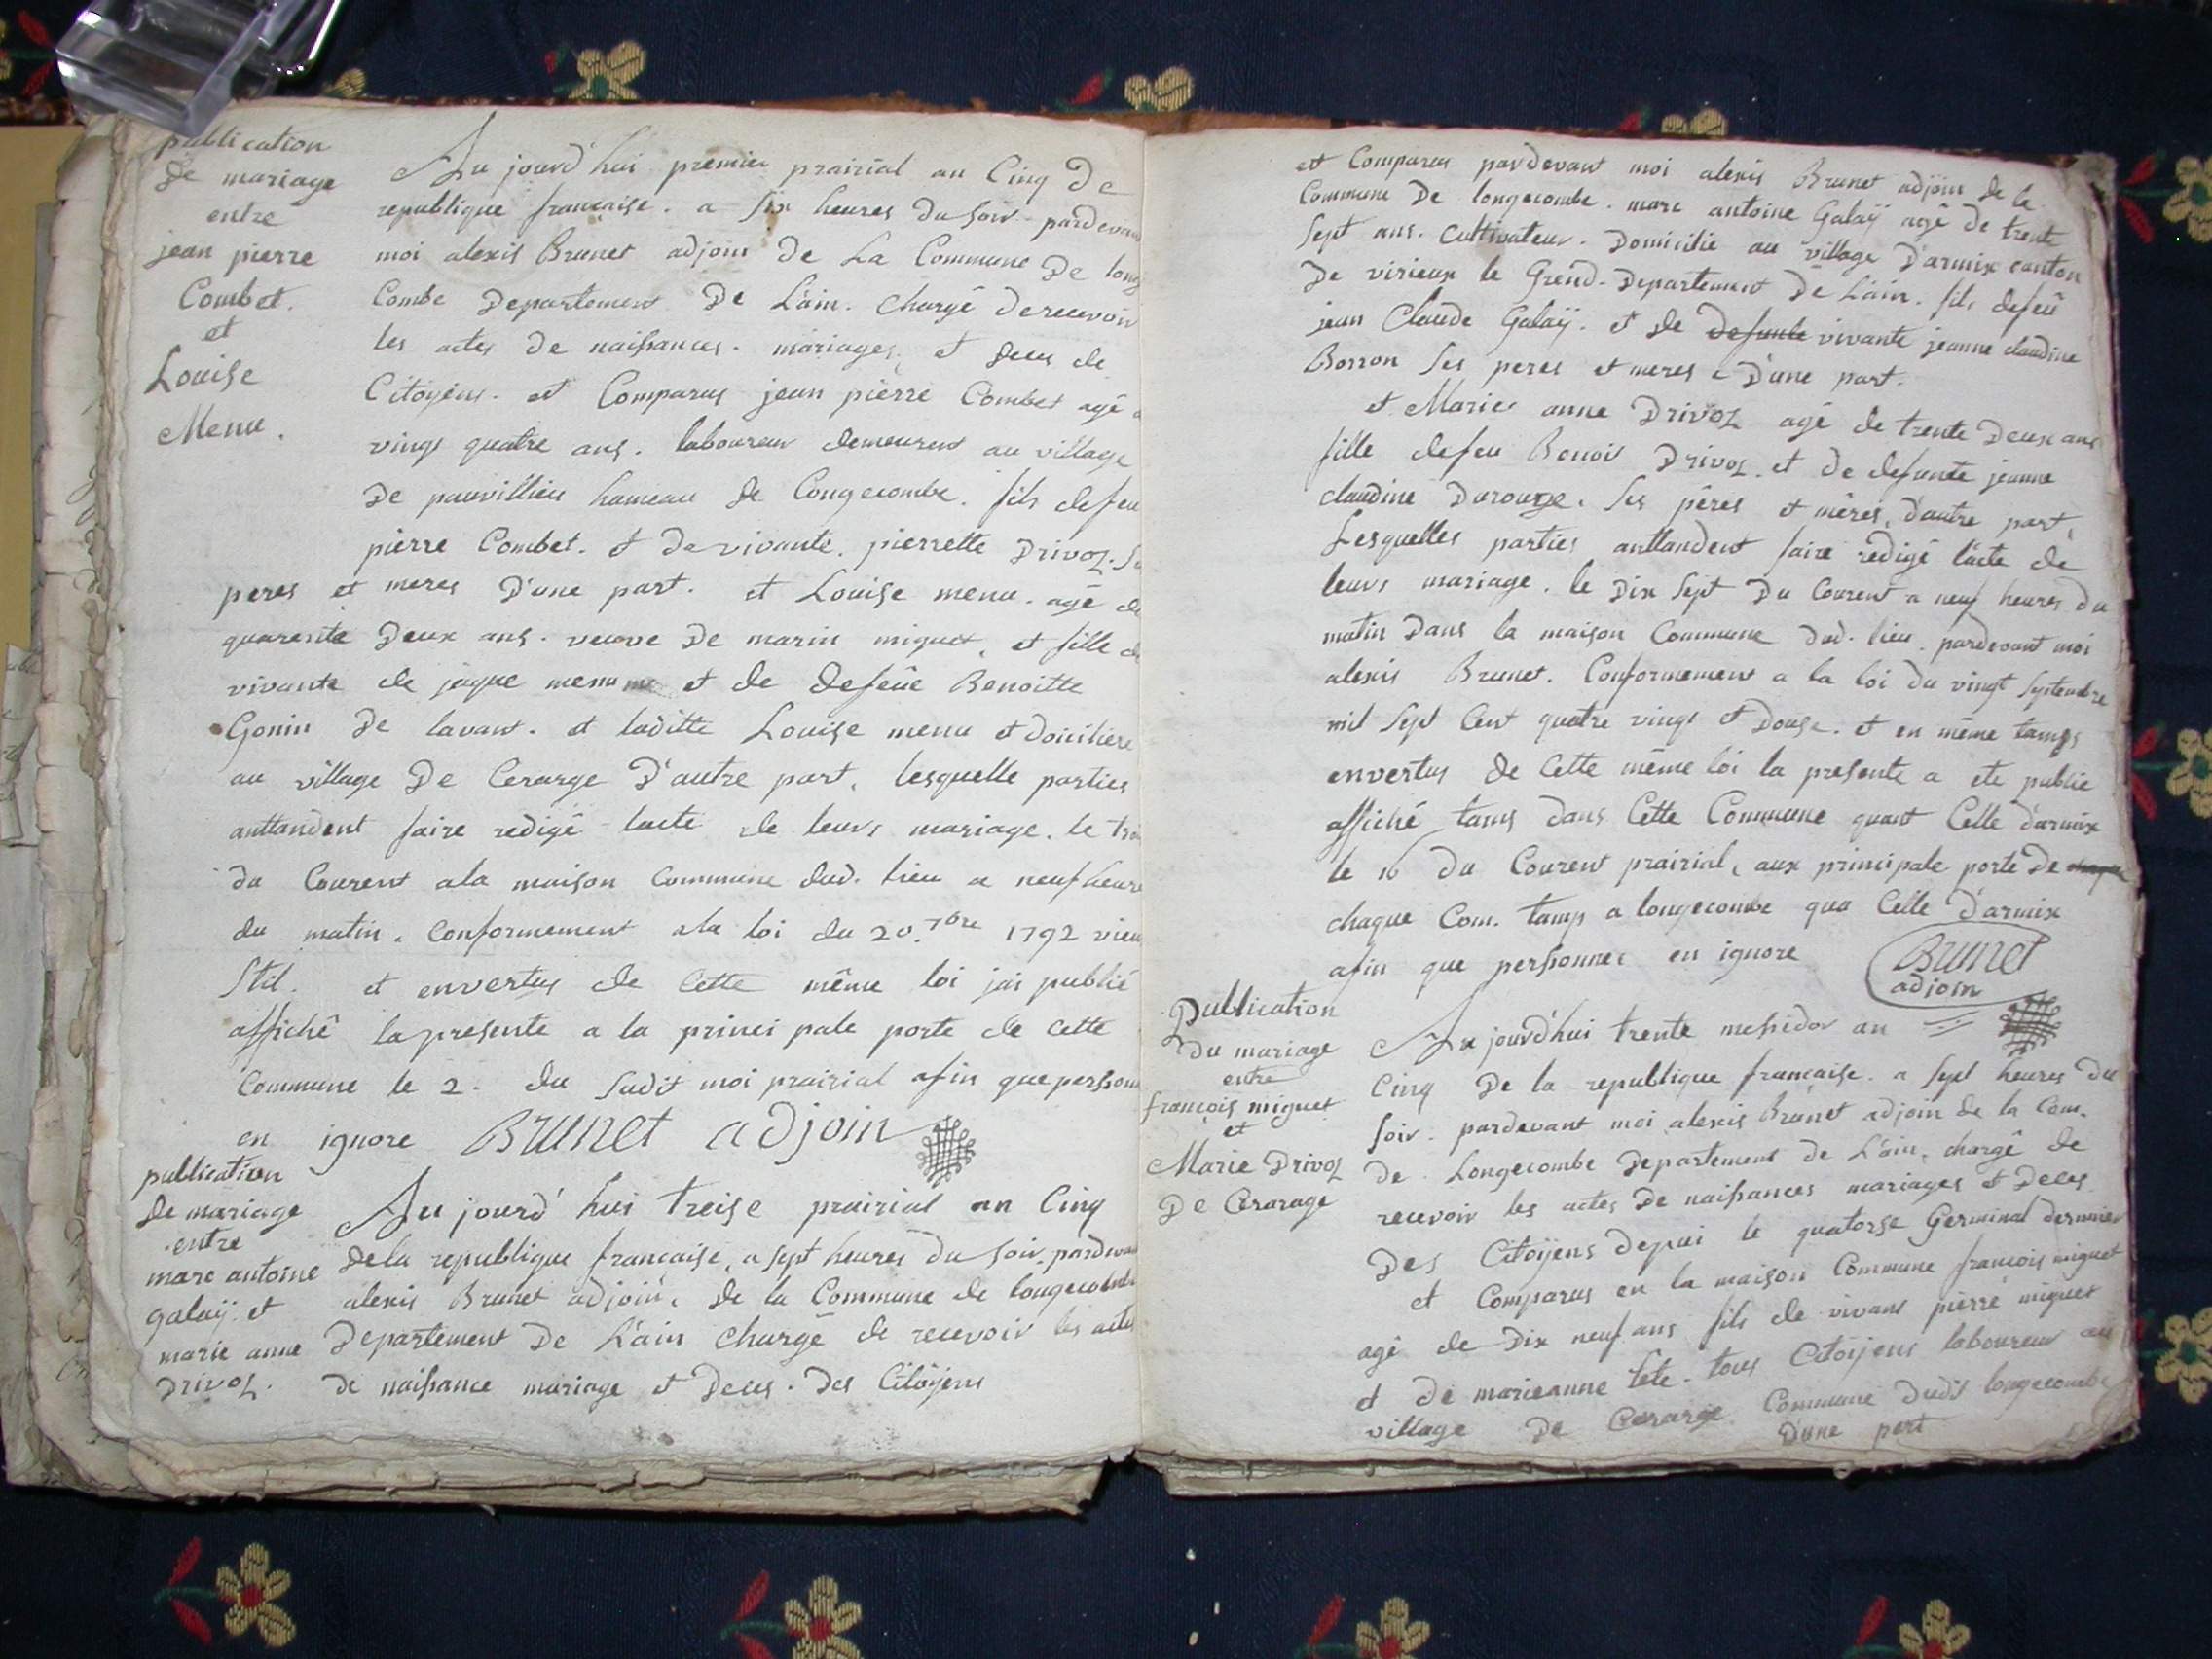 publication
de mariage
entre
jean pierre
Combet.
et
Louise
Menu.
Au jourd'hui premier prairial an Cinq de
republique francaise. a six heures du soir pardevan
moi alexis Brunet adjoin de La Commune de long
Combe Departement De L'ain. chargé de recevoir
les actes de naissances. mariages. et deces de
Citoyens. et Comparus jean pierre Combet agé
vingt quatre ans. laboureur demeurent au village
de pauvillieu hameau de Longecombe. fils defeu
pierre Combet. et de vivante. pierrette Drivoz. S
peres et meres D'une part. et Louise menu. agé de
quarente Deux ans. veuve De marin miguet, et fille d
vivante de jaque menu et de defeüe Benoitte
Gonin de lavant. et laditte Louise menu et doiciliere
au village De Cerarge D'autre part, lesquelle parties
anttandent faire redigé lacte de leurs mariage. le tro
du Courent a la maison Commune dud. lieu a neuf heure
du matin. Conformement a la loi du 20. 7bre 1792 vieu
Stil. et envertus de Cette même loi jai publié
affiché la presente a la princi pale porte de cette
Commune le 2. du Sudit moi prairial afin que personn
en ignore Brunet adjoin
publication
de mariage
entre
marc antoine
galaÿ. et
marie anne
Drivoz.
Au jourd'hui treise prairial an Cinq
dela republique francaise, a sept heures du soir. pardevan
alexis Brunet adjoin. de la Commune de longecombe
Departement De L'ain chargé de recevoir les actes
de naissance mariage et deces. des Citoÿens
et Comparus pardevant moi alexis Brunet adjoin de la
Commune De longecombe. marc antoine Galaÿ agé de trente
Sept ans. Cultivateur. Domicilié au village D'armix canton
De virieux le Grend. Departement De L'ain. fils defeu
jean Claude Galaÿ. et de defunte vivante jeanne claudine
Borron Ses peres et meres D'une part.
et Marie anne Drivoz agé de trente Deux ans
fille defeu Benoit Drivoz. et de defunte jeanne
claudine Darouze. Ses pêres et mêres, d'autre part,
Lesquelles parties anttandent faire redigé l'acte de
leurs mariage. le Dix Sept Du Courent a neuf heures du
matin Dans la maison Commune dud. lieu. pardevant moi
alexis Brunet. Conformement a la loi du vingt Septembre
mil Sept Cent quatre vingt et Douse. et en même tamps
envertus de Cette même loi la presente a ete publie
affiché tams dans Cette Commune quant Celle d'armix
le 16 du Courent prairial, aux principale porte de
chaque Com. tamp a longecombe qua Celle D'armix
afin que personne en ignore Brunet
adjoin
Publication
du mariage
entre
francois miguet
et
Marie Drivoz
De Cerarage
Au jourd'hui trente messidor an
Cinq De la republique francaise. a Sept heures du
soir. pardevant moi alexis Brunet adjoin de la Com.
de Longecombe Departement de L'ain, chargé de
recevoir les actes De naissances mariages et Deces
Des Citoÿens depui le quatorse Germinal dernier
et Comparus en la maison Commune francois miguet
agé de Dix neuf ans fils de vivant pierre miguet
et de marieanne tete. tous Citoijens laboureur au
village De Cerarge Commune dudit longecombe
D'une part